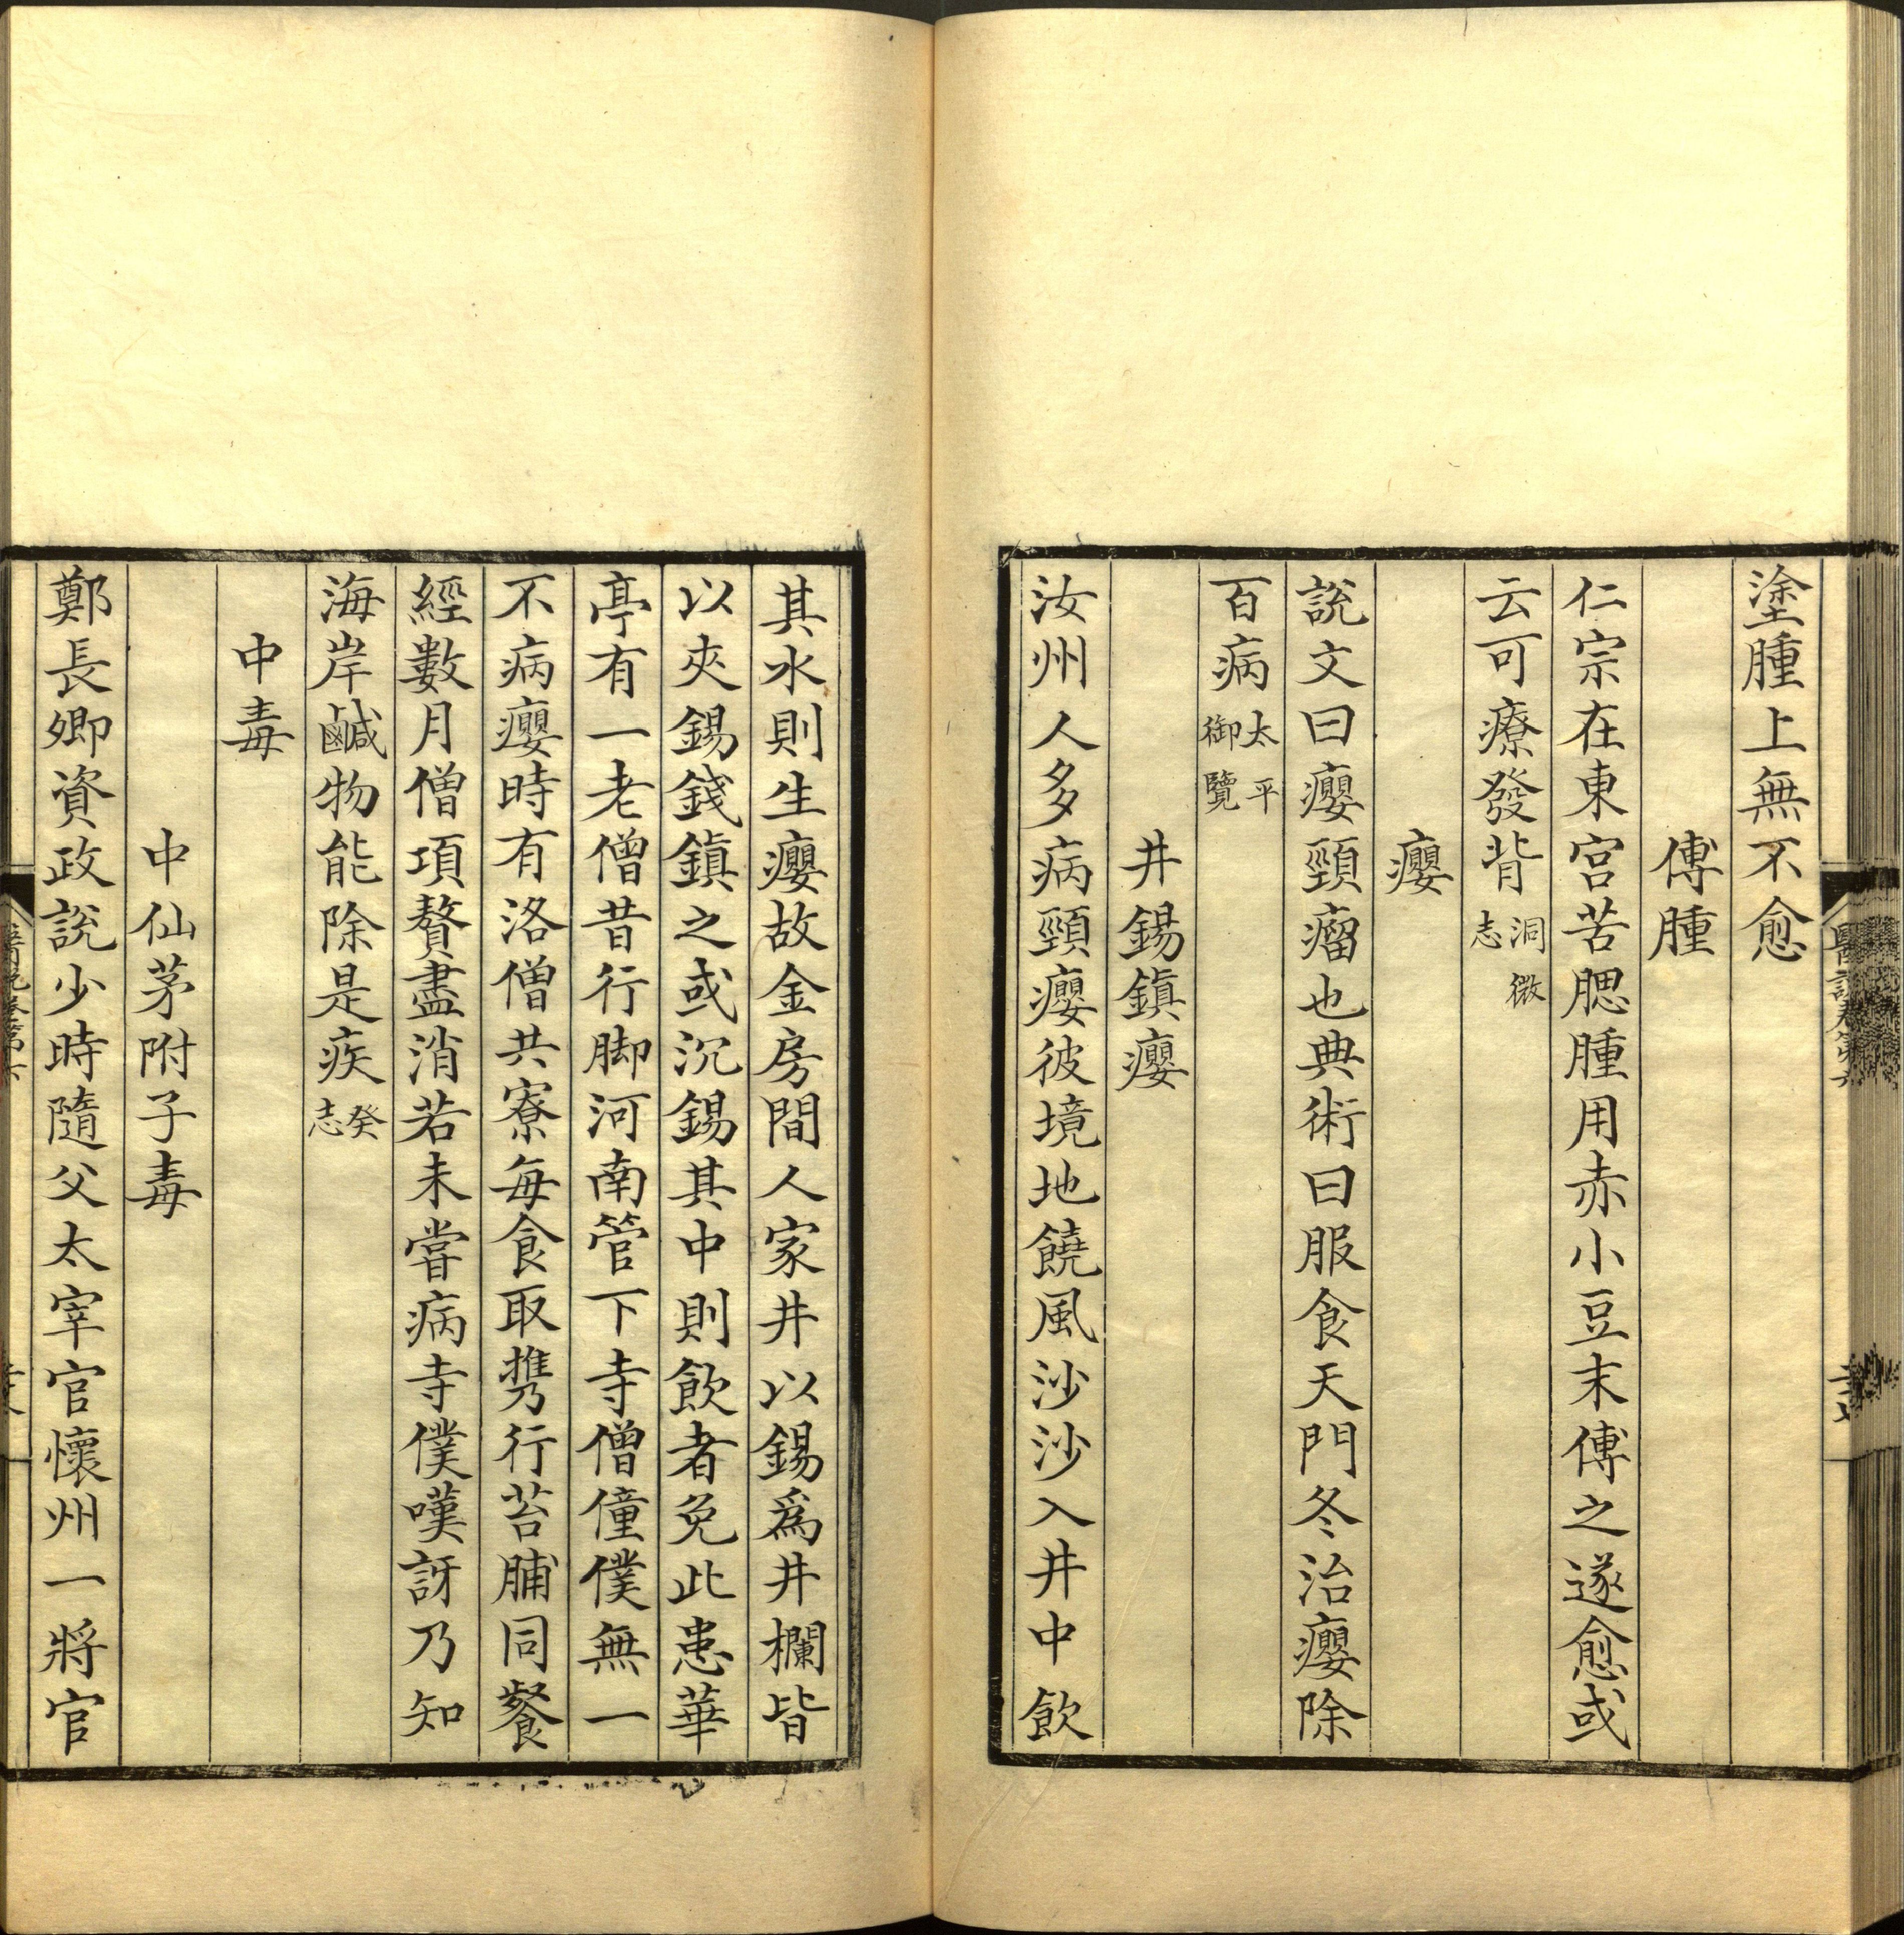 塗腫上無不愈
傅腫
仁宗在東宮苦腮腫用赤小豆末傅之遂愈或
云可療發背洞微志
癭
說文曰癭頸瘤也典術曰服食天門冬治癭除
百病太平御覽
井錫鎮癭
汝州人多病頸癭彼境地饒風沙沙入井中飲
其水則生癭故金房間人家井以錫爲井欄皆
以夾錫錢鎮之或沉錫其中則飲者免此患華
亭有一老僧昔行脚河南管下寺僧僮僕無一
不病癭時有洛僧共寮每食取携行苔脯同餐
經數月僧項贅盡消若未嘗病寺僕嘆訝乃知
海岸鹹物能除是疾癸志
中毒
中仙茅附子毒
鄭長卿資政說少時隨父太宰官懷州一將官
醫說卷第六